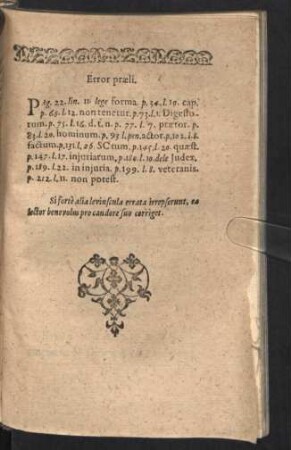 Error præli.
Pag. 22. lin. 11 lege forma. p. 34. l. 19. cap.
p. 69. l. 12. non tenetur. p. 73. l. 1. Digesto-
rum. p. 75. l. 16. d. f. n. p. 77. l. 7. prætor. p.
83. l. 20. hominum. p. 93 l. pen. actor. p. 102. l. 8.
factum. p. 131. l. 26. SCtum. p. 105 l. 20. quæst.
p. 147. l. 17. injuriarum, p. 180. l. 10 dele Judex.
p. 189. l. 22. in injuria. p. 199. l. 8. veteranis.
p. 212. l. 11. non potest.
Si fortè alia leviuscula errata irrepserunt, ea
lector benevolus pro candore suo corriget.